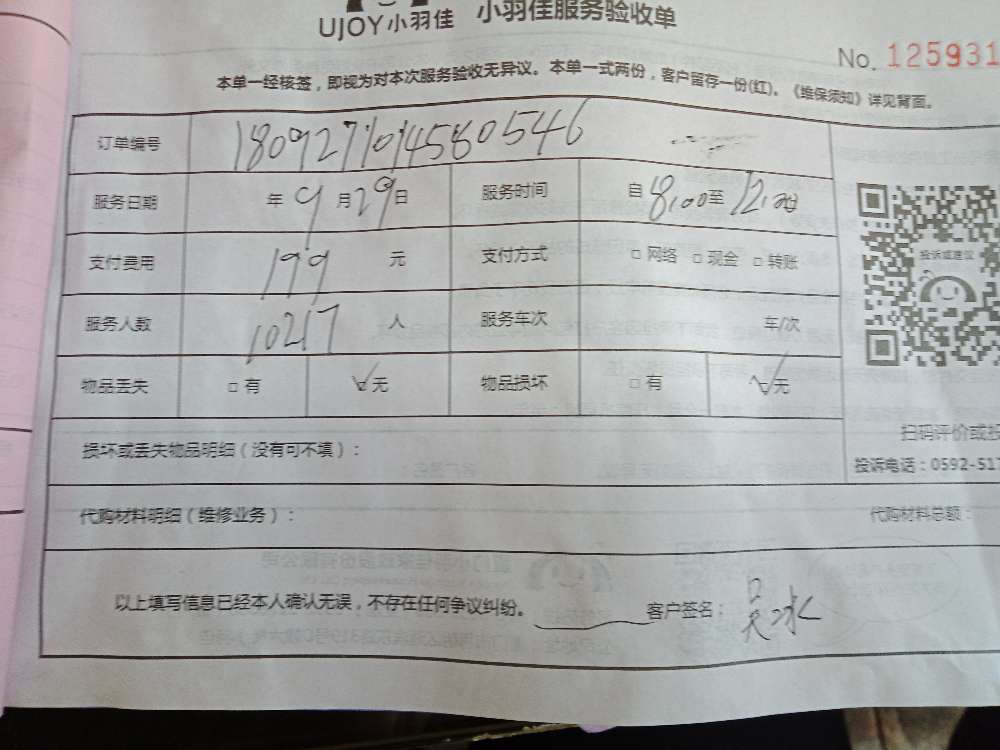 UJOY小羽佳 小羽佳服务验收单
No. 125931
本单一经核签，即视为对本次服务验收无异议。本单一式两份，客户留存一份(红)。《维保须知》详见背面。
订单编号 1809271014580546
服务日期 年 9 月 29 日 服务时间 自 8:00 至 12:00
支付费用 199 元 支付方式 □ 网络 □ 现金 □ 转账
服务人数 10217 人 服务车次 车/次
物品丢失 □ 有 ☑ 无 物品损坏 □ 有 ☑ 无
投诉或建议
扫码评价或投
投诉电话：0592-517
损坏或丢失物品明细（没有可不填）：
代购材料明细（维修业务）： 代购材料总额：
以上填写信息已经本人确认无误，不存在任何争议纠纷。 客户签名： 吴冰